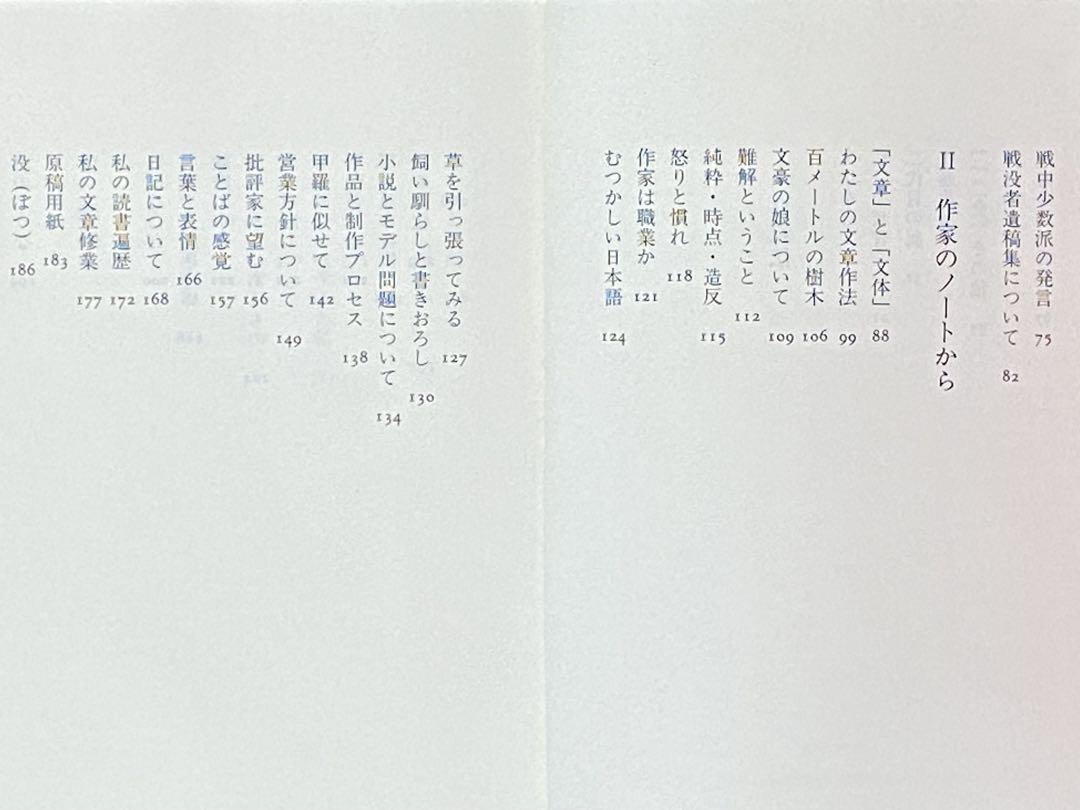 戦中少数派の発言 75
戦没者遺稿集について 82
II 作家のノートから
「文章」と「文体」 88
わたしの文章作法 99
百メートルの樹木 106
文豪の娘について 109
難解ということ 112
純粋・時点・造反 115
怒りと慣れ 118
作家は職業か 121
むつかしい日本語 124
草を引っ張ってみる 127
飼い馴らしと書きおろし 130
小説とモデル問題について 134
作品と制作プロセス 138
甲羅に似せて 142
営業方針について 149
批評家に望む 156
ことばの感覚 157
言葉と表情 166
日記について 168
私の読書遍歴 172
私の文章修業 177
原稿用紙 183
没(ぼつ) 186